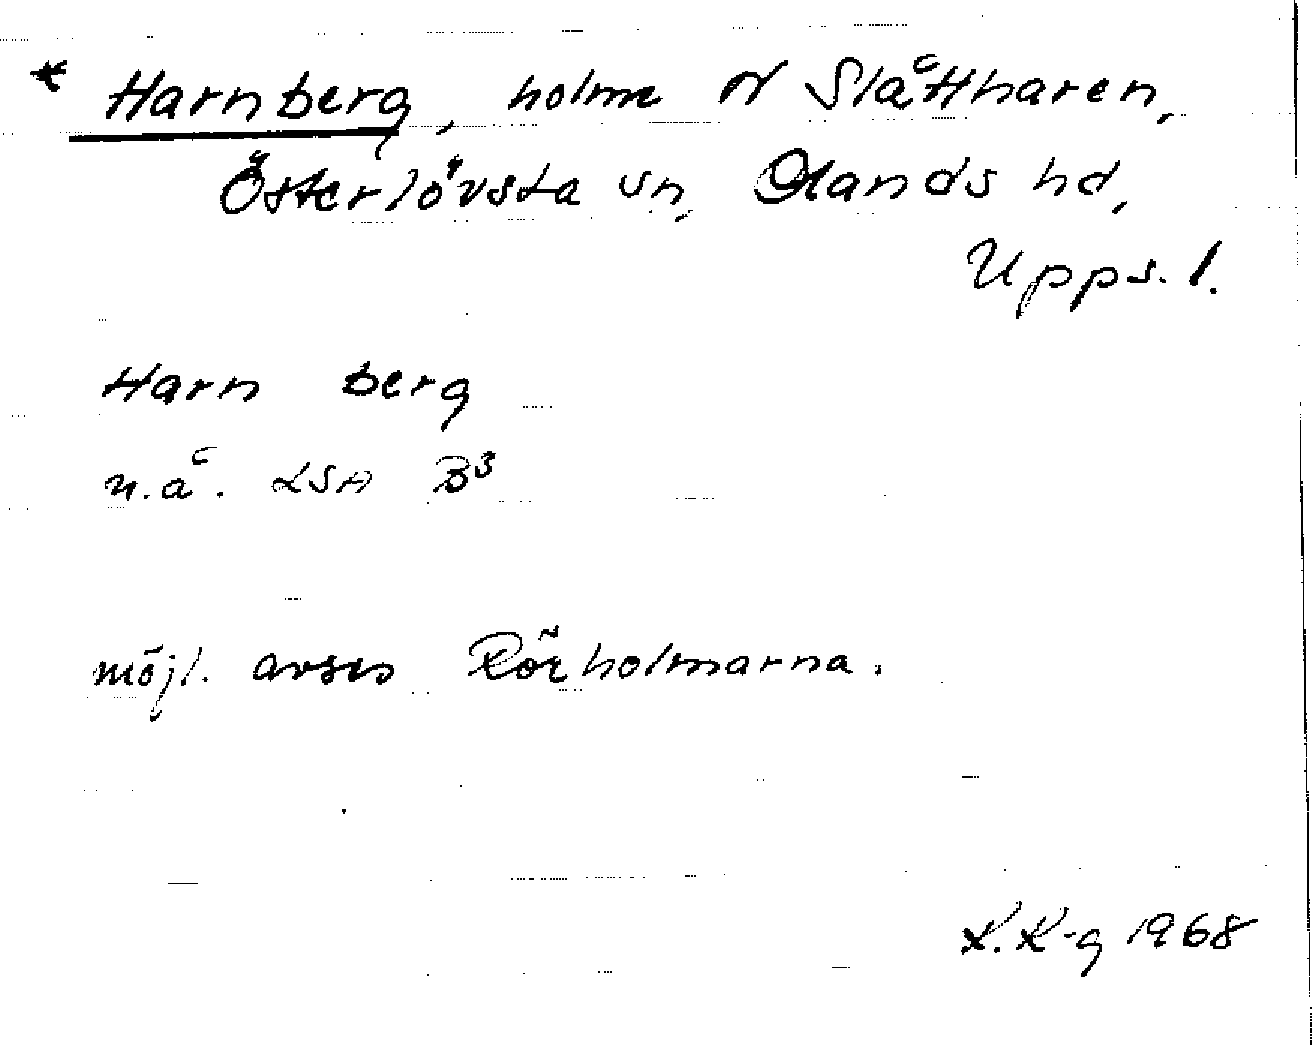 * Harnberg, holme N Slåttharen,
Österlövsta sn, Olands hd,
Upps. l.
Harn berg
n.å. LSA B³
möjl. avses Rörholmarna.
K. K-g 1968